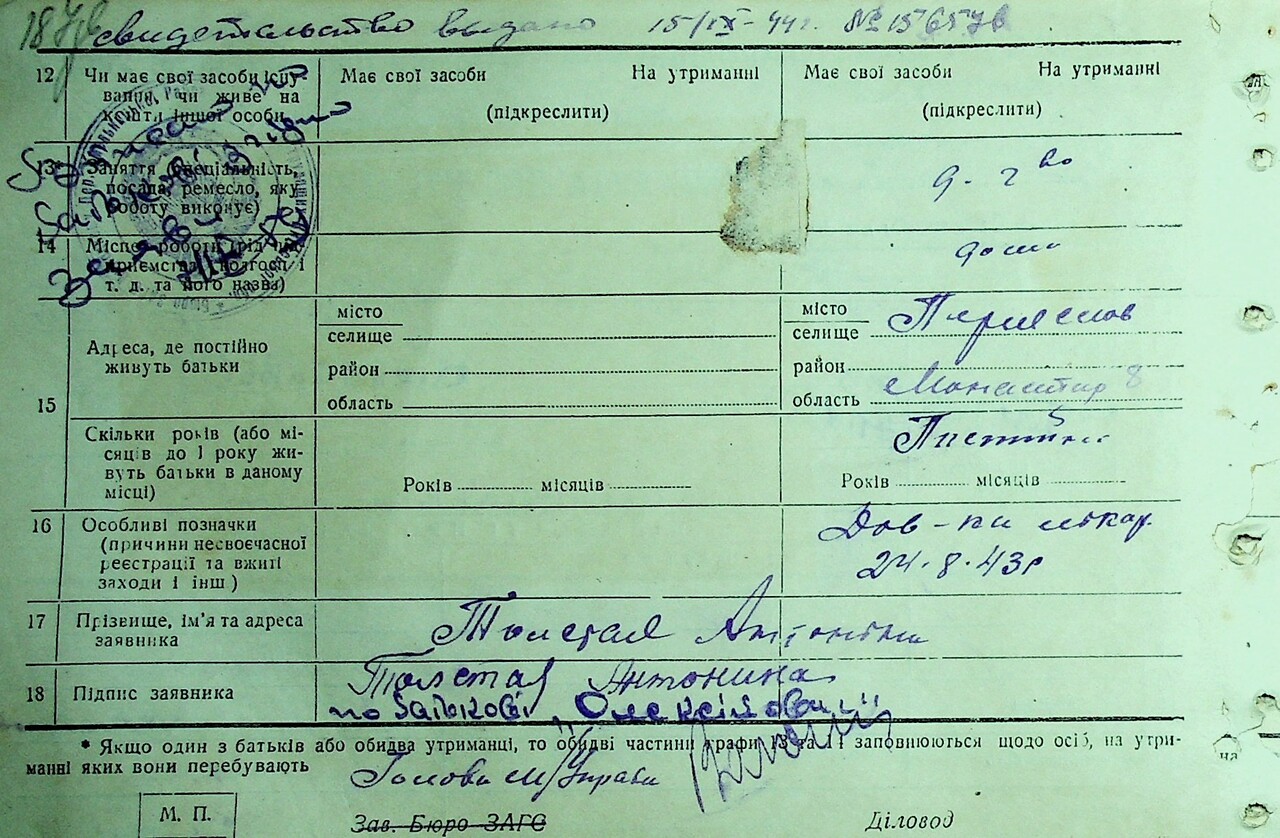 свидетельство выдано 15/IX-44г. № 156576
12 Чи має свої засоби існування, чи живе на кошти іншої особи
Має свої засоби На утриманні
(підкреслити)
Має свої засоби На утриманні
(підкреслити)
13 Заняття (спеціальність, посада, ремесло, яку роботу виконує)
14 Місце роботи
т. д. та його назва)
15 Адреса, де постійно живуть батьки
місто
селище
район
область
місто
селище
район
область
Монастир 8
Скільки років (або місяців до 1 року живуть батьки в даному місці)
Років місяців
Постійно
Років місяців
16 Особливі позначки (причини несвоєчасної реєстрації та вжиті заходи і інш)
Дов-ка лікар
24.8.43р
17 Прізвище, ім'я та адреса заявника
Толстая Антоніна
18 Підпис заявника
Толстая Антонина
по батькові „Олексійовна"
* Якщо один з батьків або обидва утриманці, то обидві частини графи 13 та 14 заповнюються щодо осіб, на утри-
манні яких вони перебувають
Голова м/Управи
М. П.
Зав. Бюро ЗАГС
Діловод